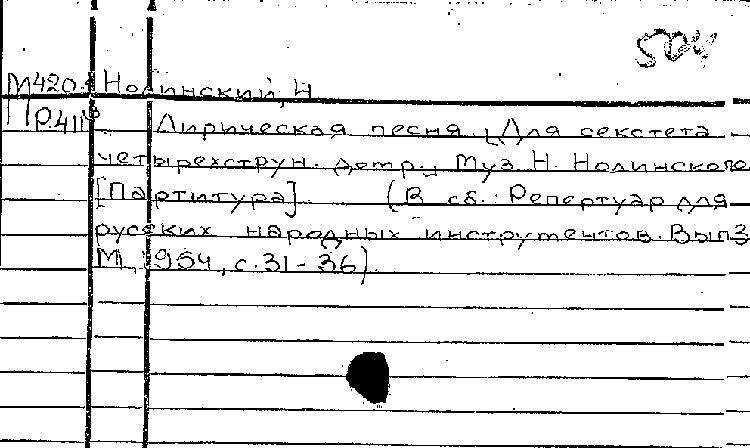 504
М420.1 Нолинский, Н
П Р.411 Лирическая песня. [Для секстета
четырехструн. домр.; Муз. Н. Нолинского
[Партитура] (В сб.: Репертуар для
русских народных инструментов. Вып 3
М, 1954, с. 31-36)